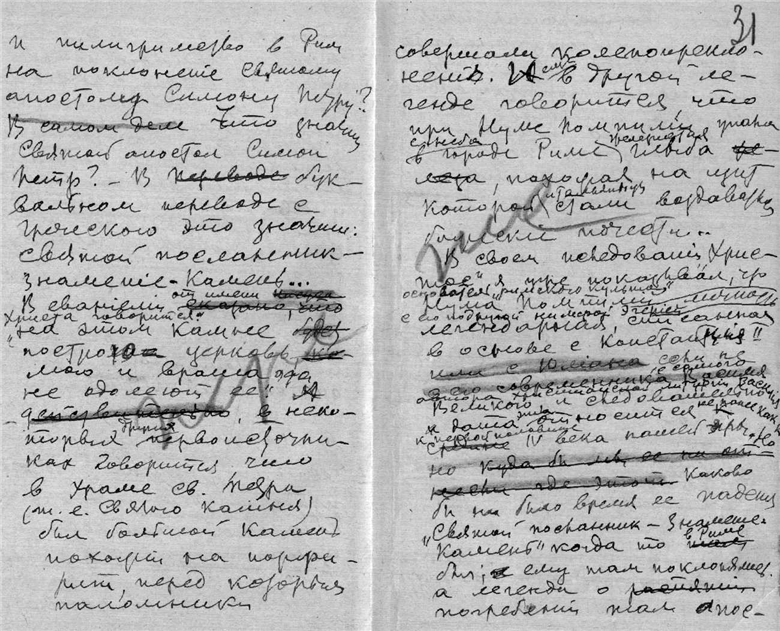 и пилигримство в Рим
на поклоненіе святому
апостолу Симону Петру?
В самом деле что значит
Святой апостол Симон
Петр? – В переводе бук-
вальном переводе с
греческого это значит:
святой посланник –
знаменіе – Камень...
В евангеліи от имени
Христа говорится
"на этом камне
построю церковь
мою и врата ада
не одолеют ее"
действительно, в неко-
торых других первоисточни-
ках говорится что
в Храме св. Петра
(т. е. Святого Камня)
был большой Камень
похожій на порфи-
рит, перед которым
паломники
31
совершали коленопрекло-
ненія. И в другой ле-
генде говорится что
при Нуме Помпиліи упала
с неба
в городе Риме глыба
железа, похожая на щит
которой италіянцы стали воздавать
божескія почести..
В своем изследованіи "Хрис-
тос" я уже показывал, что
основатель "римского культа"
Нума Помпилій личность
с его подругой нимфой Эгеріей
легендарная, списанная
в основе с Константина
или с Юліана
его современника
Великого и следовательно
и дата эта относится не ранее как
к первой половине
IV века нашей эры. Но
но куда бы мы ее ни от-
несли где этой каково
бы ни было время ее паденія
"Святой посланник – Знаменіе-
Камень" когда то в Риме
был, и ему там поклонялись
а легенды о распятіи
погребеніи там апос-